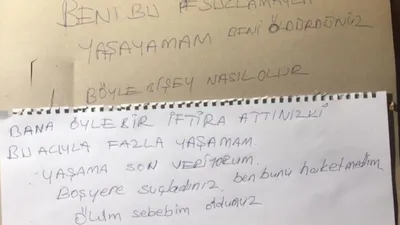 BENİ BU
YAŞAYAMAM BENİ ÖLDÜRDÜNÜZ
BÖYLE BİŞEY NASIL OLUR
BANA ÖYLE BİR İFTİRA ATTINIZKİ
BU ACIYLA FAZLA YAŞAMAM.
YAŞAMA SON VERİYORUM.
Boşyere suçladınız, ben bunu haketmedim
Ölüm sebebim oldunuz